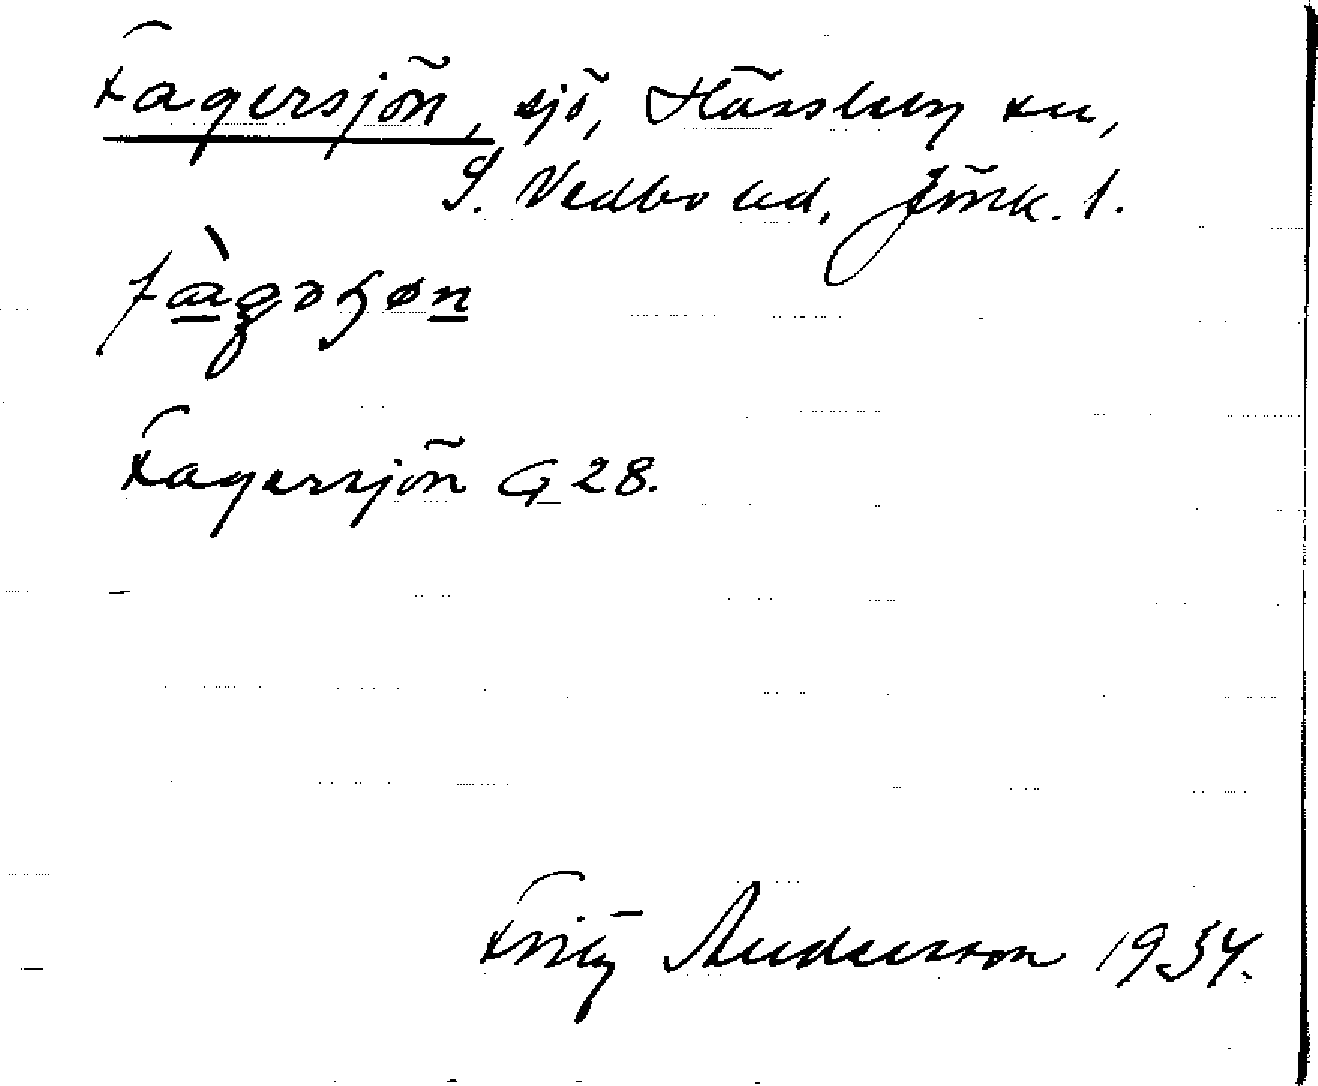 Fagersjön, sjö, Hässleby sn,
S. Vedbo hd, Jönk. l.
Fagersjön G 28.
Fritz Andersson 1934.